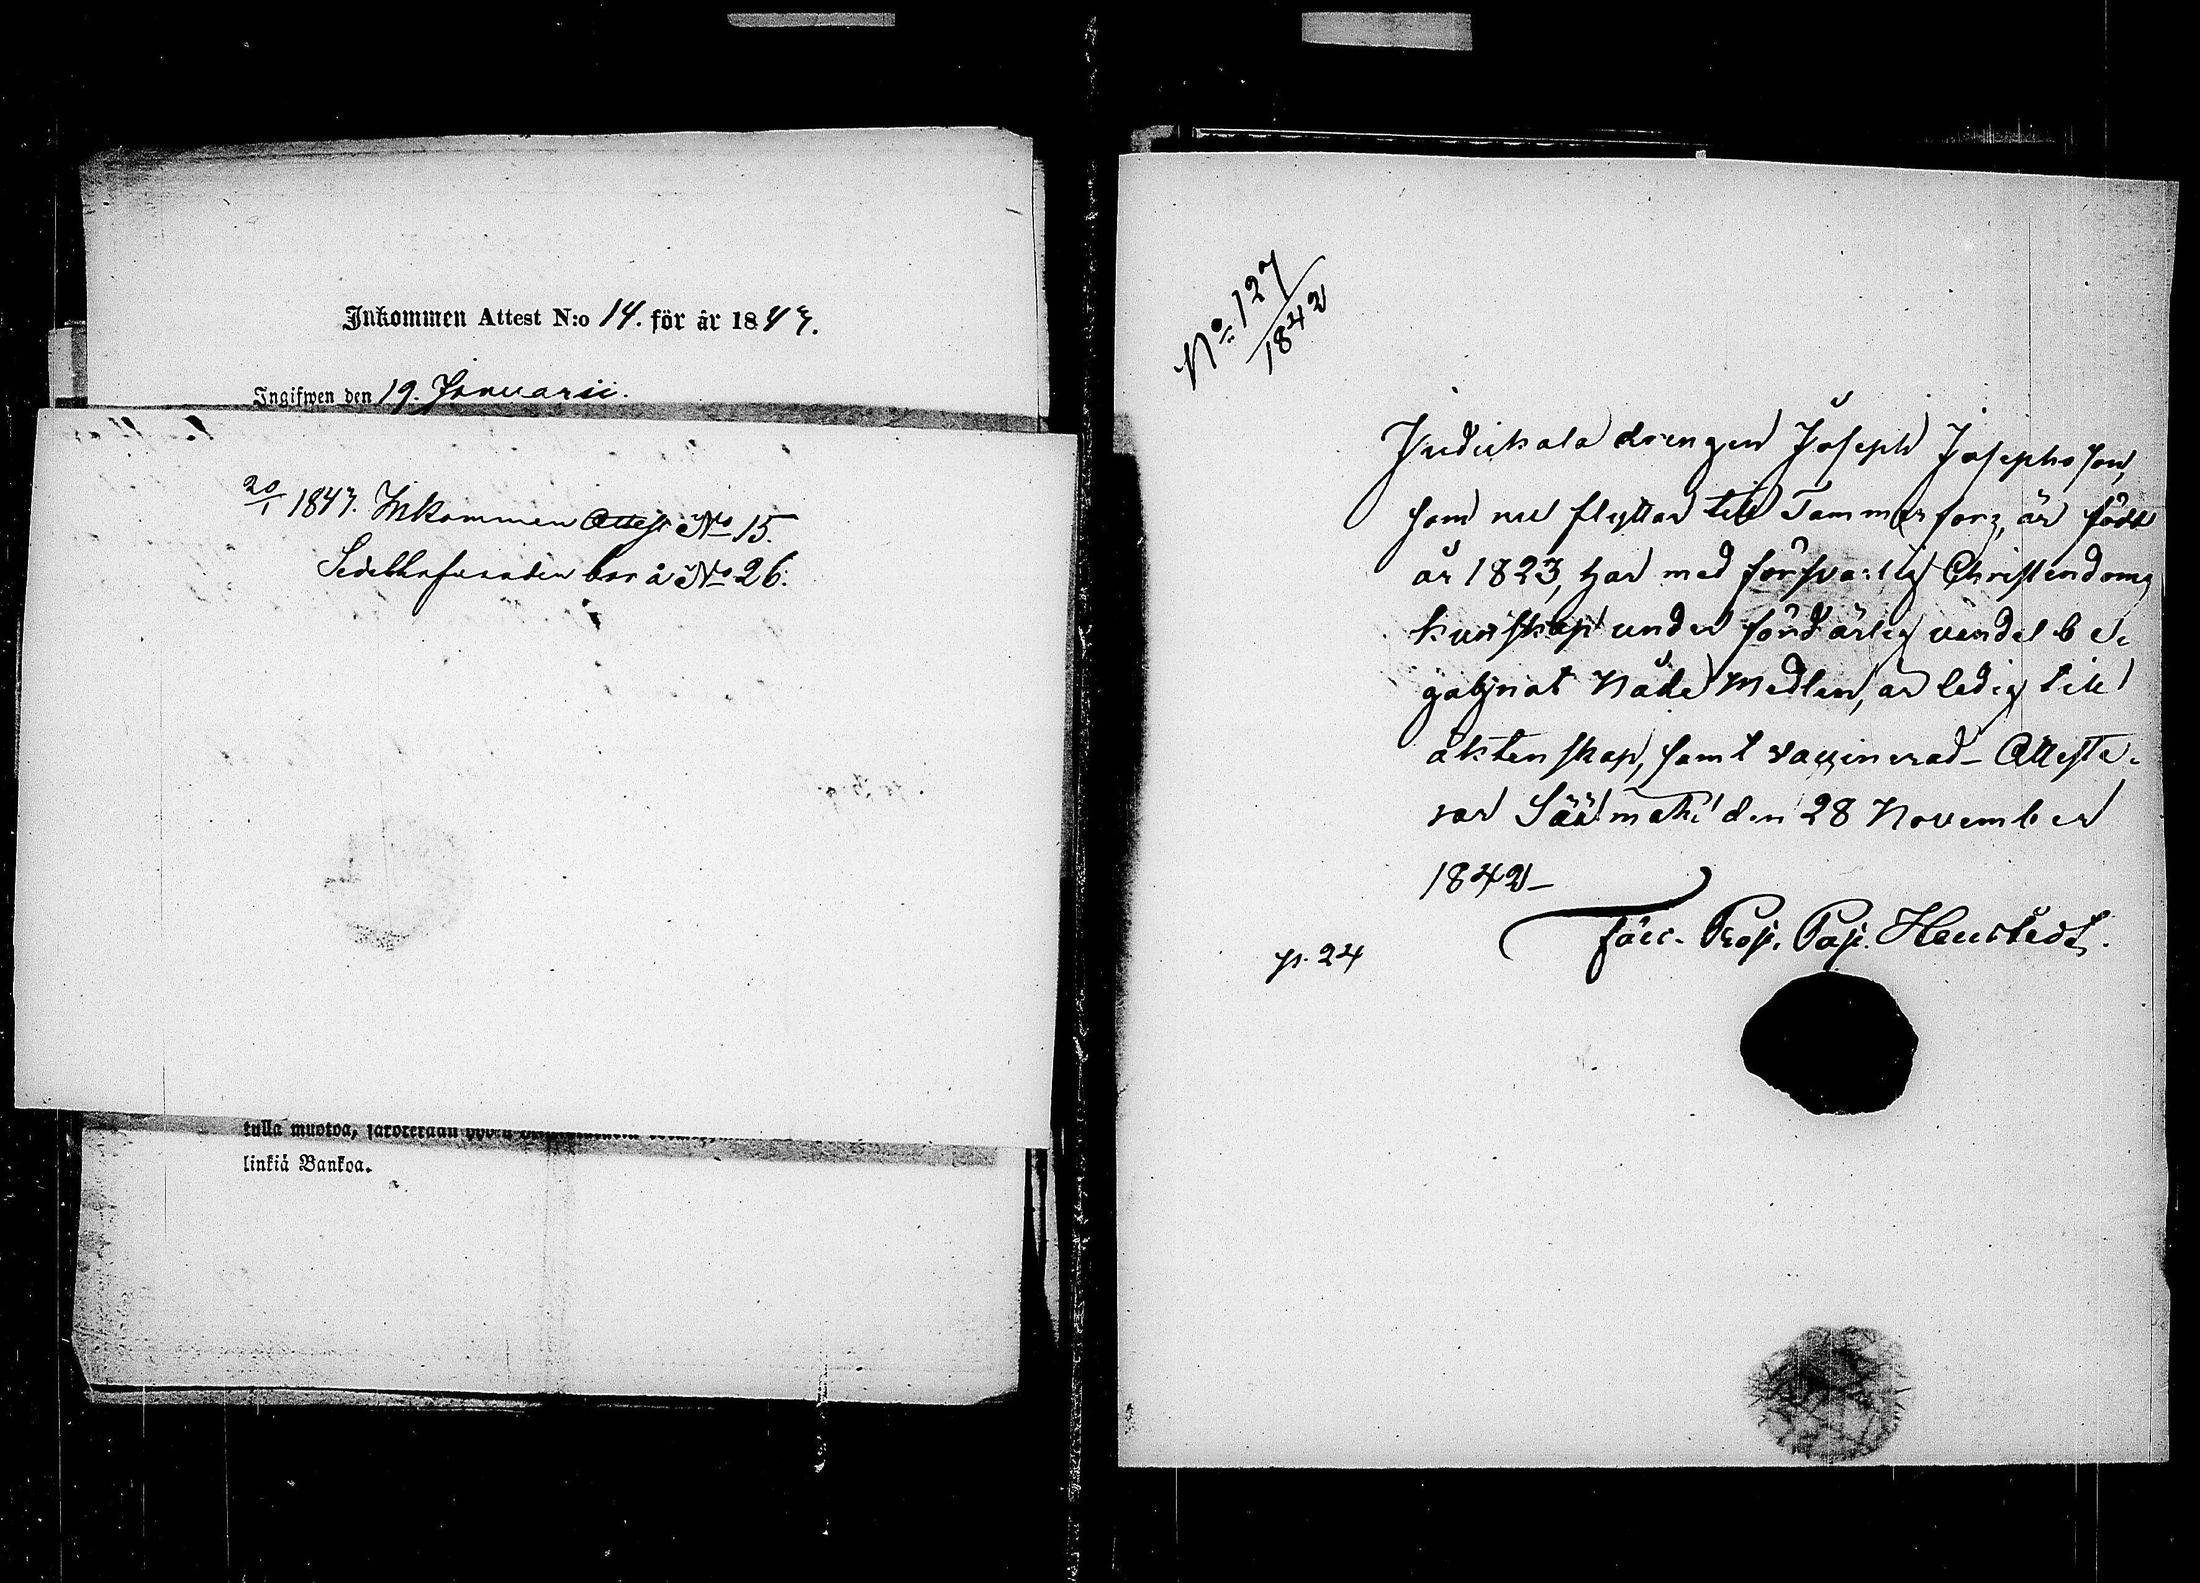 Inkommen Attest N:o 14. för år 1843.
Ingifwen den 19. Januarii.
20/1 1843. Inkommen Attest No 15.
Sedelhafvaren bor å No 26.
tulla muotoa,
linkiä Bankoa.
No 127/1842
drengen Joseph Josephsson,
som nu flyttar till Tammerfors, är född
år 1823, har med försvarlig Christendoms
kunskap under förd ärlig vandel be-
gagnat Nåde Medlen, är ledig till
äktenskap, samt vaccinerad – Atteste-
rar Sääxmäki den 28 November
1842 –
p. 24